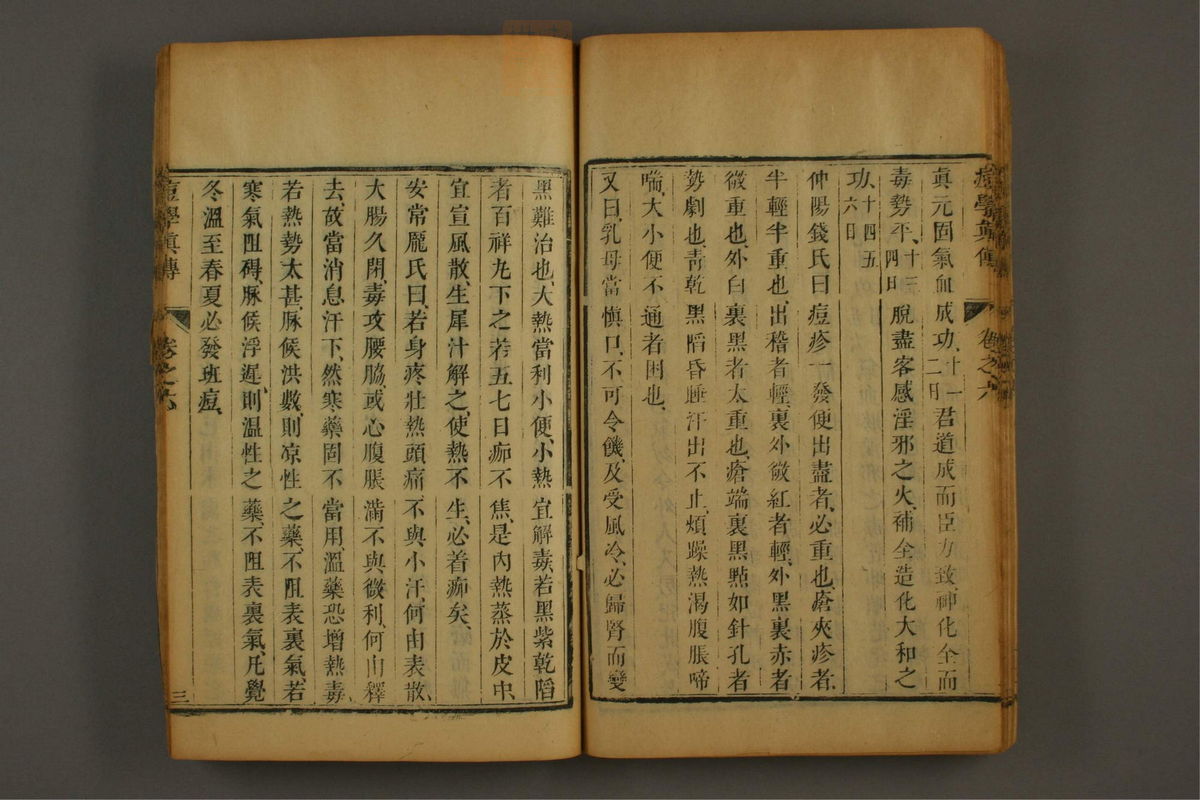 痘學真傳 卷之六
真元固氣血成功、十一二日君道成而臣力致、神化全而
毒勢平、十三四日脫盡客感淫邪之火、補全造化大和之
功、十四五六日
仲陽錢氏曰痘疹一發便出盡者、必重也、瘡夾疹者、
半輕半重也、出稽者輕、裏外微紅者輕、外黑裏赤者
微重也、外白裏黑者太重也、瘡端裏黑點如針孔者
勢劇也、青乾黑陷昏睡汗出不止、煩躁熱渴腹脹啼
喘、大小便不通者困也、
又曰、乳母當慎口、不可令饑、及受風冷、必歸腎而變
黑難治也、大熱當利小便、小熱宜解毒、若黑紫乾陷
者百祥丸下之若五七日痂不焦、是內熱蒸於皮中、
宜宣風散、生犀汁解之、使熱不生、必着痂矣、
安常龐氏曰、若身疼壯熱頭痛、不與小汗、何由表散、
大腸久閉、毒攻腰脇、或心腹脹滿不與微利、何由釋
去、故當消息汗下、然寒藥固不當用、溫藥恐增熱毒
若熱勢太甚、脉候洪數、則凉性之藥、不阻表裏氣、若
寒氣阻碍、脉候浮遲、則溫性之藥、不阻表裏氣、凡覺
冬溫至春夏必發班痘、
痘學真傳 卷之六 三